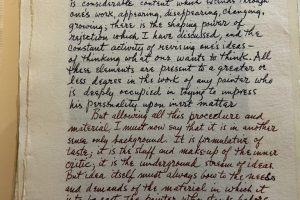 is considerable content which extends through
one's work, appearing, disappearing, changing,
growing; there is the shaping power of
rejection which I have discussed, and the
constant activity of revising one's ideas—
of thinking what one wants to think. All
these elements are present to a greater or
less degree in the work of any painter who
is deeply occupied in trying to impress
his personality upon inert matter.
But allowing all this procedure and
material, I must now say that it is in another
sense only background. It is formulative of
taste; it is the stuff and make-up of the inner
critic; it is the underground stream of ideas.
But idea itself must always bow to the needs
and demands of the material in which it